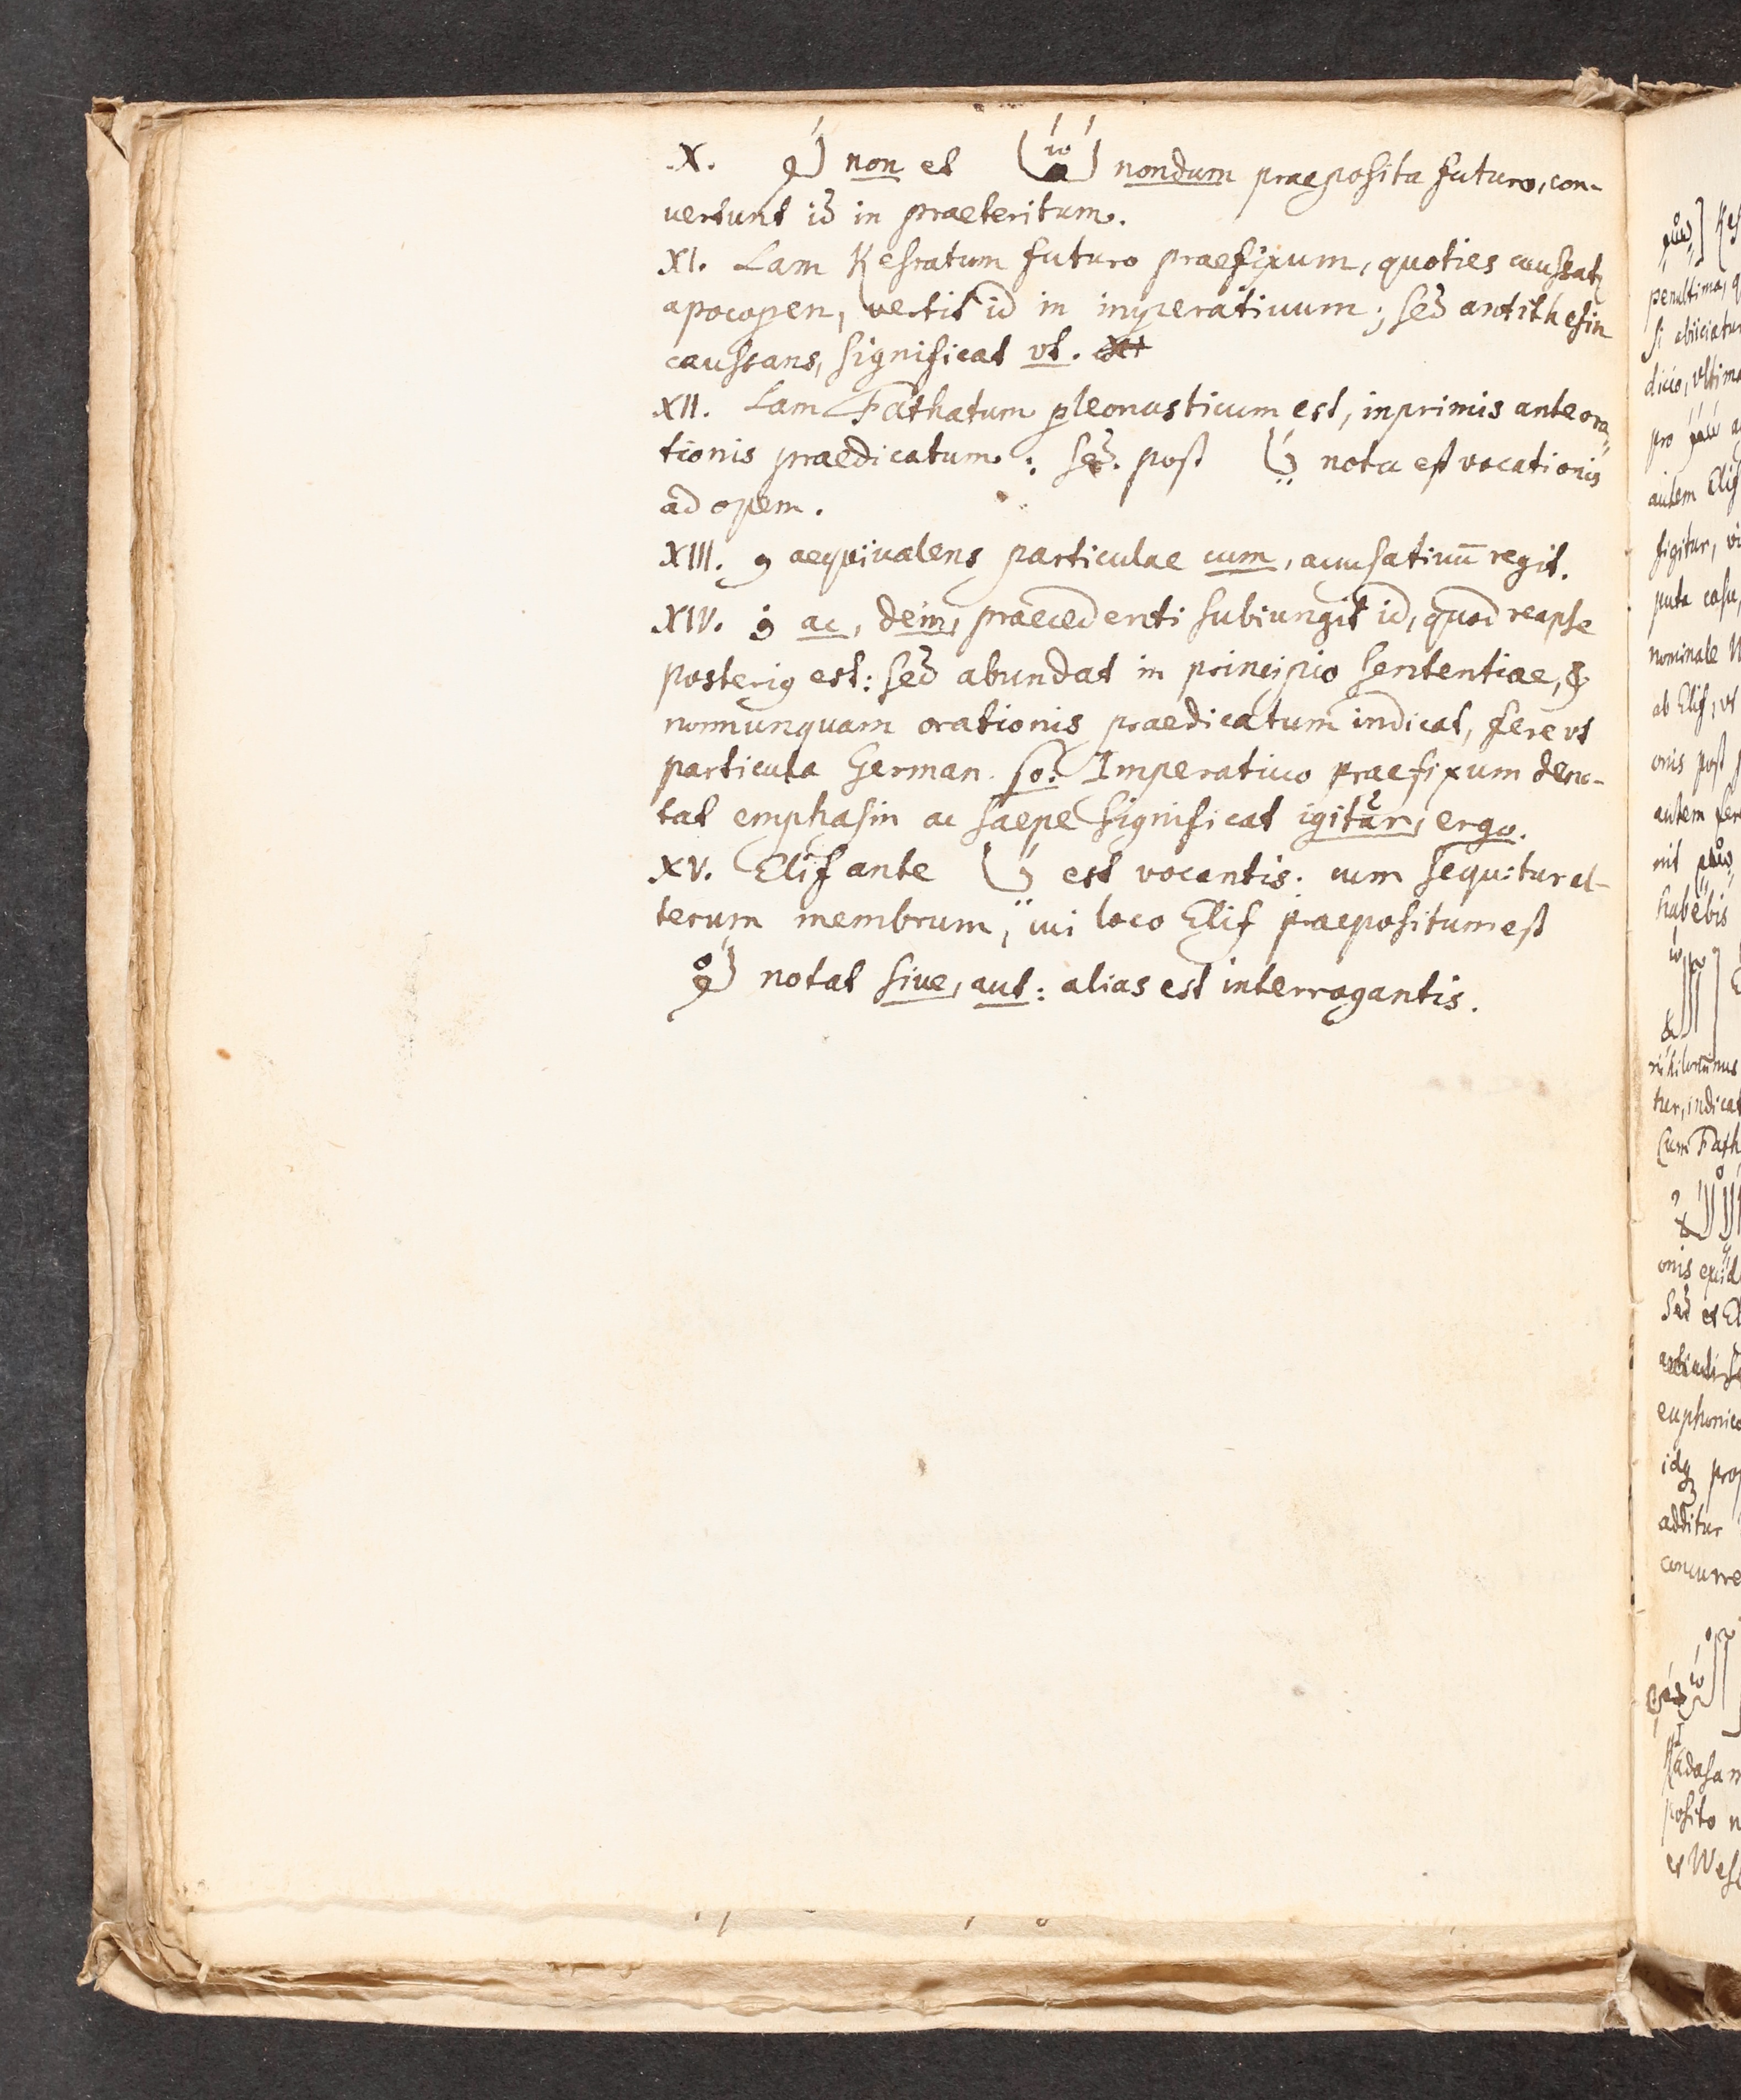 X. لَم non et لَمَّا nondum praeposita futuro, con-
uertunt id in praeteritum.
XI. Lam Kesratum futuro praefixum, quoties caussatq
apocopen, vertit id in imperatiuum; sed antithesin
caussans, significat vt.
XII. Lam Fathatum pleonasticum est, inprimis ante ora-
tionis praedicatum: sed post يَا nota est vocationis
ad opem.
XIII. و aequiualens particulae cum, accusatiuū regit.
XIV. ف ac, dein, praecedenti subiungit id, quod reapse
posterig est: sed abundat in principio sententiae, &
nonnunquam orationis praedicatum indicat, fere vt
particula German. so: Imperatiuo praefixum deno-
tat emphasin ac saepe significat igitur, ergo.
XV. Elif ante يَا est vocantis: cum sequitur al-
terum membrum, cui loco Elif praepositum est
أَمْ notat siue, aut: alias est interrogantis.
penultima,
si abiiciatur
vltima
pro
autem Elif
figitur,
puta casu,
nominale
ab Elif, vt
onis post
autem
habebis
tur, indicat
Cum Fath
onis
sed et
euphonic
idq
additur
concurre
posito
et